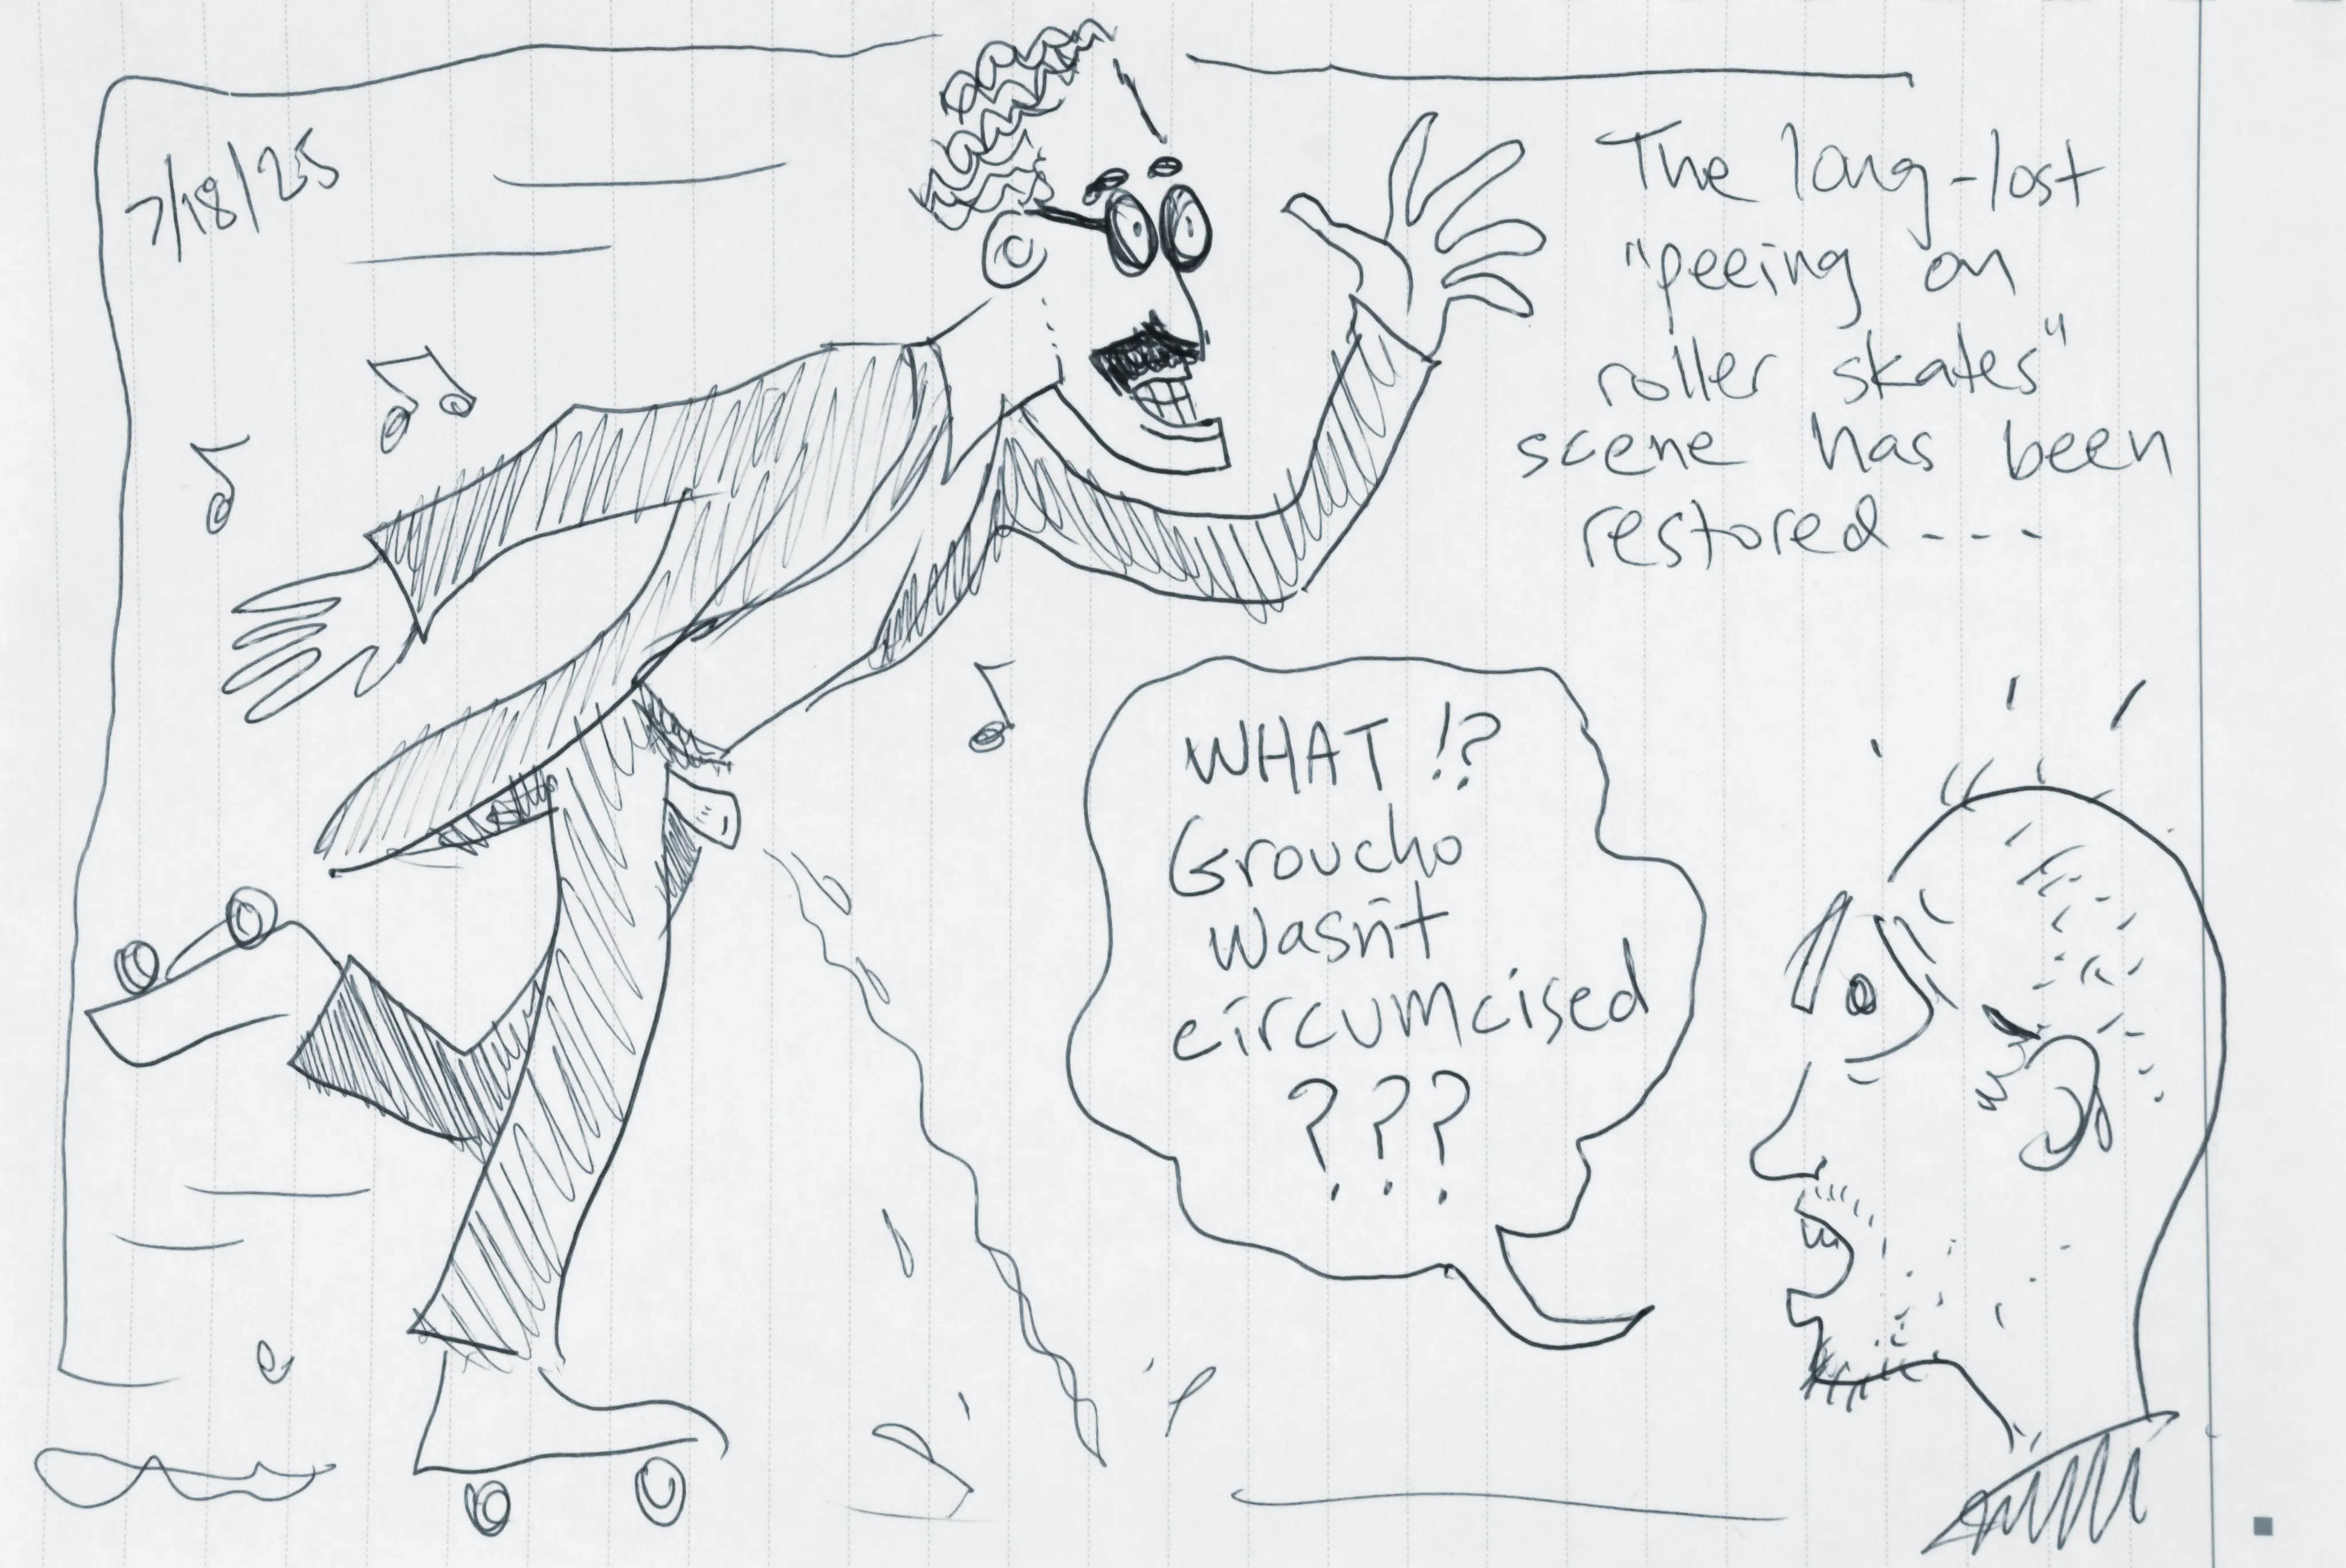 7/18/25
The long-lost
"peeing on
roller skates"
scene has been
restored---
WHAT!?
Groucho
wasn't
circumcised
???